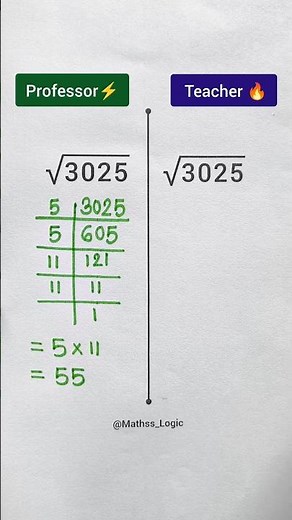 Professor⚡
Teacher 🔥
√3025
√3025
5 | 3025
5 | 605
11 | 121
11 | 11
1
= 5 × 11
= 55
@Mathss_Logic